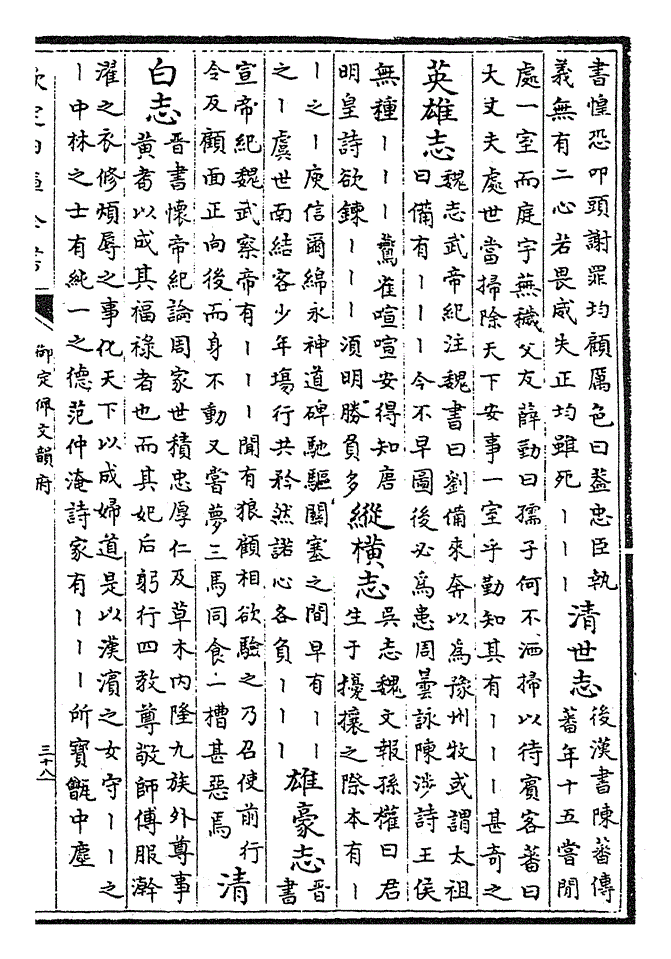 書惶恐叩頭謝罪均顧厲色曰蓋忠臣執
義無有二心若畏威失正均雖死丨丨丨
清世志
後漢書陳蕃傳
蕃年十五嘗閒
處一室而庭宇蕪穢父友薛勤曰孺子何不洒掃以待賓客蕃曰
大丈夫處世當掃除天下安事一室乎勤知其有丨丨丨甚奇之
英雄志
魏志武帝紀注魏書曰劉備來奔以為豫州牧或謂太祖
曰備有丨丨丨今不早圖後必為患周曇詠陳涉詩王侯
無種丨丨丨鷰雀喧喧安得知唐
明皇詩欲鍊丨丨丨須明勝負多
縱橫志
吳志魏文報孫權曰君
生于擾攘之際本有丨
丨之丨庾信爾綿永神道碑馳驅關塞之間早有丨丨
之丨虞世南結客少年場行共矜然諾心各負丨丨丨
雄豪志
晉
書
宣帝紀魏武察帝有丨丨丨聞有狼顧相欲驗之乃召使前行
令反顧面正向後而身不動又嘗夢三馬同食一槽甚惡焉
清
白志
晉書懷帝紀論周家世積忠厚仁及草木内隆九族外尊事
黄耇以成其福祿者也而其妃后躬行四教尊敬師傅服澣
濯之衣修煩辱之事化天下以成婦道是以漢濱之女守丨丨之
丨中林之士有純一之德范仲淹詩家有丨丨丨所寶甑中塵
欽定四庫全書
御定佩文韻府
三十八